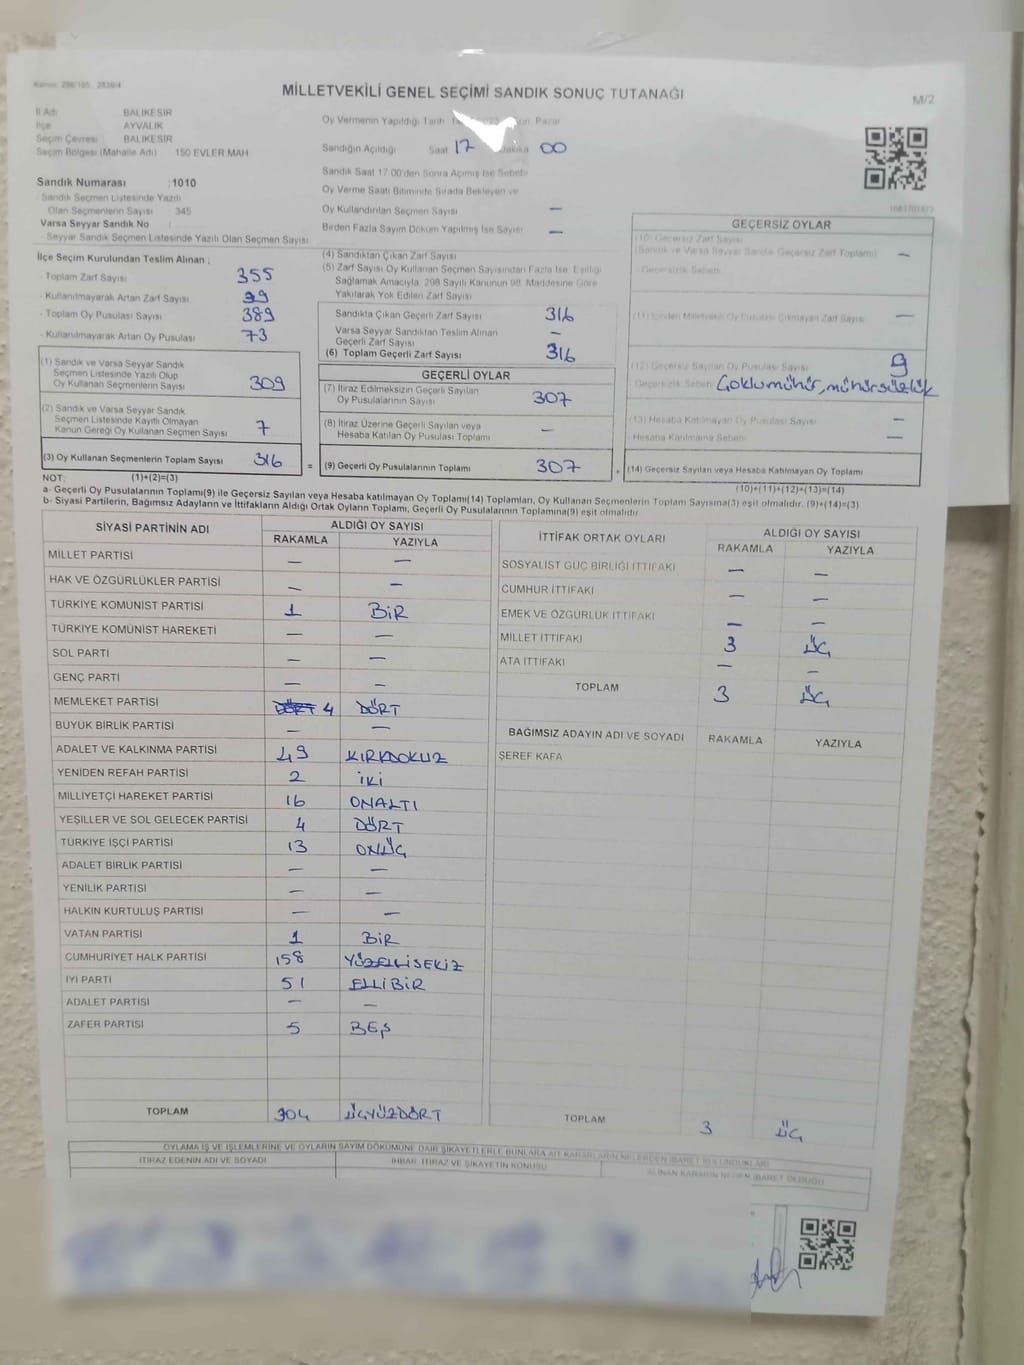 Kanun: 298/105 , 2839/4
MİLLETVEKİLİ GENEL SEÇİMİ SANDIK SONUÇ TUTANAĞI
M/2
İl Adı BALIKESİR
İlçe AYVALIK
Seçim Çevresi BALIKESİR
Seçim Bölgesi (Mahalle Adı) 150 EVLER MAH
Sandık Numarası :1010
Sandık Seçmen Listesinde Yazılı
Olan Seçmenlerin Sayısı 345
Varsa Seyyar Sandık No
Seyyar Sandık Seçmen Listesinde Yazılı Olan Seçmen Sayısı
Oy Vermenin Yapıldığı Tarih Pazar
Sandığın Açıldığı Saat 17 Dakika 00
Sandık Saat 17.00'den Sonra Açılmış İse Sebebi
Oy Verme Saati Bitiminde Sırada Bekleyen ve
Oy Kullandırılan Seçmen Sayısı —
Birden Fazla Sayım Döküm Yapılmış İse Sayısı —
İlçe Seçim Kurulundan Teslim Alınan :
- Toplam Zarf Sayısı 355
- Kullanılmayarak Artan Zarf Sayısı 39
- Toplam Oy Pusulası Sayısı 389
- Kullanılmayarak Artan Oy Pusulası 73
(1) Sandık ve Varsa Seyyar Sandık
Seçmen Listesinde Yazılı Olup
Oy Kullanan Seçmenlerin Sayısı 309
(2) Sandık ve Varsa Seyyar Sandık
Seçmen Listesinde Kayıtlı Olmayan
Kanun Gereği Oy Kullanan Seçmen Sayısı 7
(3) Oy Kullanan Seçmenlerin Toplam Sayısı 316
(4) Sandıktan Çıkan Zarf Sayısı
(5) Zarf Sayısı Oy Kullanan Seçmen Sayısından Fazla İse, Eşitliği
Sağlamak Amacıyla, 298 Sayılı Kanunun 98. Maddesine Göre
Yakılarak Yok Edilen Zarf Sayısı
Sandıkta Çıkan Geçerli Zarf Sayısı 316
Varsa Seyyar Sandıktan Teslim Alınan
Geçerli Zarf Sayısı —
(6) Toplam Geçerli Zarf Sayısı 316
GEÇERLİ OYLAR
(7) İtiraz Edilmeksizin Geçerli Sayılan
Oy Pusulalarının Sayısı 307
(8) İtiraz Üzerine Geçerli Sayılan veya
Hesaba Katılan Oy Pusulası Toplamı —
= (9) Geçerli Oy Pusulalarının Toplamı 307
GEÇERSİZ OYLAR
(10) Geçersiz Zarf Sayısı
(Sandık ve Varsa Seyyar Sandık Geçersiz Zarf Toplamı) —
Geçersizlik Sebebi
(11) İçinden Milletvekili Oy Pusulası Çıkmayan Zarf Sayısı —
(12) Geçersiz Sayılan Oy Pusulası Sayısı 9
Geçersizlik Sebebi Çoklumühür, mühürsüzlük
(13) Hesaba Katılmayan Oy Pusulası Sayısı —
Hesaba Katılmama Sebebi —
+ (14) Geçersiz Sayılan veya Hesaba Katılmayan Oy Toplamı
NOT: (1)+(2)=(3)
(10)+(11)+(12)+(13)=(14)
a- Geçerli Oy Pusulalarının Toplamı(9) ile Geçersiz Sayılan veya Hesaba katılmayan Oy Toplamı(14) Toplamları, Oy Kullanan Seçmenlerin Toplam Sayısına(3) eşit olmalıdır. (9)+(14)=(3)
b- Siyasi Partilerin, Bağımsız Adayların ve İttifakların Aldığı Ortak Oyların Toplamı, Geçerli Oy Pusulalarının Toplamına(9) eşit olmalıdır.
SİYASİ PARTİNİN ADI ALDIĞI OY SAYISI
RAKAMLA YAZIYLA
MİLLET PARTİSİ — —
HAK VE ÖZGÜRLÜKLER PARTİSİ — —
TÜRKİYE KOMÜNİST PARTİSİ 1 BİR
TÜRKİYE KOMÜNİST HAREKETİ — —
SOL PARTİ — —
GENÇ PARTİ — —
MEMLEKET PARTİSİ DÖRT 4 DÖRT
BÜYÜK BİRLİK PARTİSİ — —
ADALET VE KALKINMA PARTİSİ 49 KIRKDOKUZ
YENİDEN REFAH PARTİSİ 2 İKİ
MİLLİYETÇİ HAREKET PARTİSİ 16 ONALTI
YEŞİLLER VE SOL GELECEK PARTİSİ 4 DÖRT
TÜRKİYE İŞÇİ PARTİSİ 13 ONÜÇ
ADALET BİRLİK PARTİSİ — —
YENİLİK PARTİSİ — —
HALKIN KURTULUŞ PARTİSİ — —
VATAN PARTİSİ 1 BİR
CUMHURİYET HALK PARTİSİ 158 YÜZELLİSEKİZ
İYİ PARTİ 51 ELLİBİR
ADALET PARTİSİ — —
ZAFER PARTİSİ 5 BEŞ
TOPLAM 304 ÜÇYÜZDÖRT
İTTİFAK ORTAK OYLARI ALDIĞI OY SAYISI
RAKAMLA YAZIYLA
SOSYALİST GÜÇ BİRLİĞİ İTTİFAKI — —
CUMHUR İTTİFAKI — —
EMEK VE ÖZGÜRLÜK İTTİFAKI — —
MİLLET İTTİFAKI 3 ÜÇ
ATA İTTİFAKI — —
TOPLAM 3 ÜÇ
BAĞIMSIZ ADAYIN ADI VE SOYADI RAKAMLA YAZIYLA
ŞEREF KAFA
TOPLAM 3 ÜÇ
OYLAMA İŞ VE İŞLEMLERİNE VE OYLARIN SAYIM DÖKÜMÜNE DAİR ŞİKAYETLERLE BUNLARA AİT KARARLARIN NELERDEN İBARET BULUNDUKLARI
İTİRAZ EDENİN ADI VE SOYADI
İHBAR, İTİRAZ VE ŞİKAYETİN KONUSU
ALINAN KARARIN NEDEN İBARET OLDUĞU